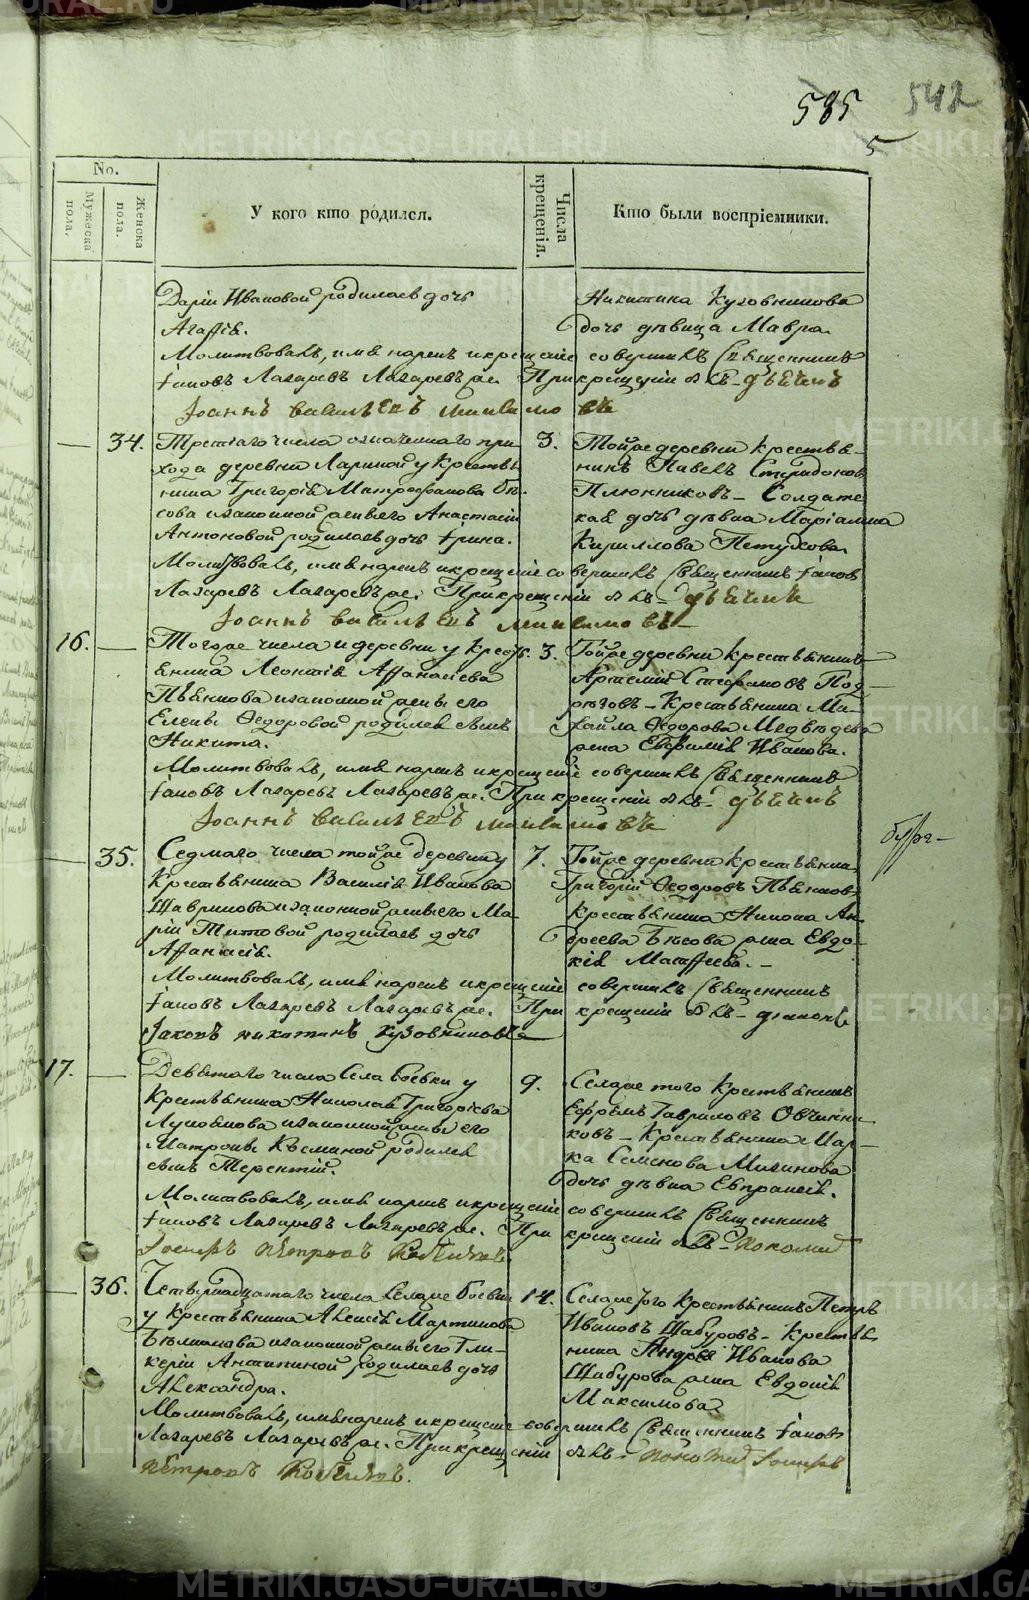 585 542
5
No.
Мужеска пола.
Женска пола.
У кого кто родился.
Числа крещенія.
Кто были воспріемники.
Даріи Ивановой родилась дочь
Агафія.
Никитина Кузовникова
дочь дѣвица Мавра.
Молитвовалъ, имя нарекъ и крещеніе совершилъ Священникъ
Іаковъ Лазаревъ Лазаревъ же. При крещеніи былъ дьячикъ
Іоаннъ Васильевъ
34. Третьяго числа означеннаго при-
хода деревни Лариной у Крестья-
нина Григорія Митрофанова Бѣ-
сова и законной жены его Анастасіи
Антоновой родилась дочь Ирина.
3. Тойже деревни крестья-
нинъ Павелъ Спиридоновъ
Плюхниковъ – Солдатс-
кая дочь дѣвка Маріамна
Кириллова Петухова.
Молитвовалъ, имя нарекъ и крещеніе совершилъ Священникъ Іаковъ
Лазаревъ Лазаревъ же. При крещеніи былъ дьячикъ
Іоаннъ Васильевъ
16. Тогоже числа и деревни у Крест-
янина Леонтія Афанасіева
Пьянкова и законной жены его
Елены Ѳедоровой родился сынъ
Никита.
3. Тойже деревни крестьянинъ
Артемій Стефановъ Под-
– Крестьянина Ми-
хайла Ѳедорова Медвѣдева
жена Евфимія Иванова.
Молитвовалъ, имя нарекъ и крещеніе совершилъ Священникъ
Іаковъ Лазаревъ Лазаревъ же. При крещеніи былъ дьячикъ
Іоаннъ Васильевъ
35. Седмаго числа тойже деревни у
Крестьянина Василія Иванова
Шаврикова и законной жены его Ма-
ріи Титовой родилась дочь
Афанасія.
7. Тойже деревни крестьянинъ
Григорій Ѳедоровъ Пьянковъ
Крестьянина Никона Ан-
дреева Бѣсова жена Евдо-
кія Матфеева.
Молитвовалъ, имя нарекъ и крещеніе совершилъ Священникъ
Іаковъ Лазаревъ Лазаревъ же. При крещеніи былъ
Іаковъ Никитинъ Кузовниковъ
17. Девятаго числа Села Боевки у
Крестьянина Николая Григоріева
и законной жены его
Матроны Козминой родился
сынъ Терентій.
9. Селаже того Крестьянинъ
Ефремъ Гавриловъ Овчинни-
ковъ – Крестьянина Мар-
ка Семенова Мизинова
дочь дѣвка Евпраксія.
Молитвовалъ, имя нарекъ и крещеніе совершилъ Священникъ
Іаковъ Лазаревъ Лазаревъ же. При крещеніи былъ Пономарь
Іосифъ Петровъ
36. Четвертнадцатаго числа Селаже Боевки
у крестьянина Алексія Мартинова
и законной жены его Гли-
керіи Антипиной родилась дочь
Александра.
14. Селаже того Крестьянинъ Петръ
Ивановъ Шабуровъ – крестья-
нина Андрея Иванова
Шабурова жена Евдокія
Максимова.
Молитвовалъ, имя нарекъ и крещеніе совершилъ Священникъ Іаковъ
Лазаревъ Лазаревъ же. При крещеніи былъ Пономарь Іосифъ
Петровъ
METRIKI.GASO-URAL.RU